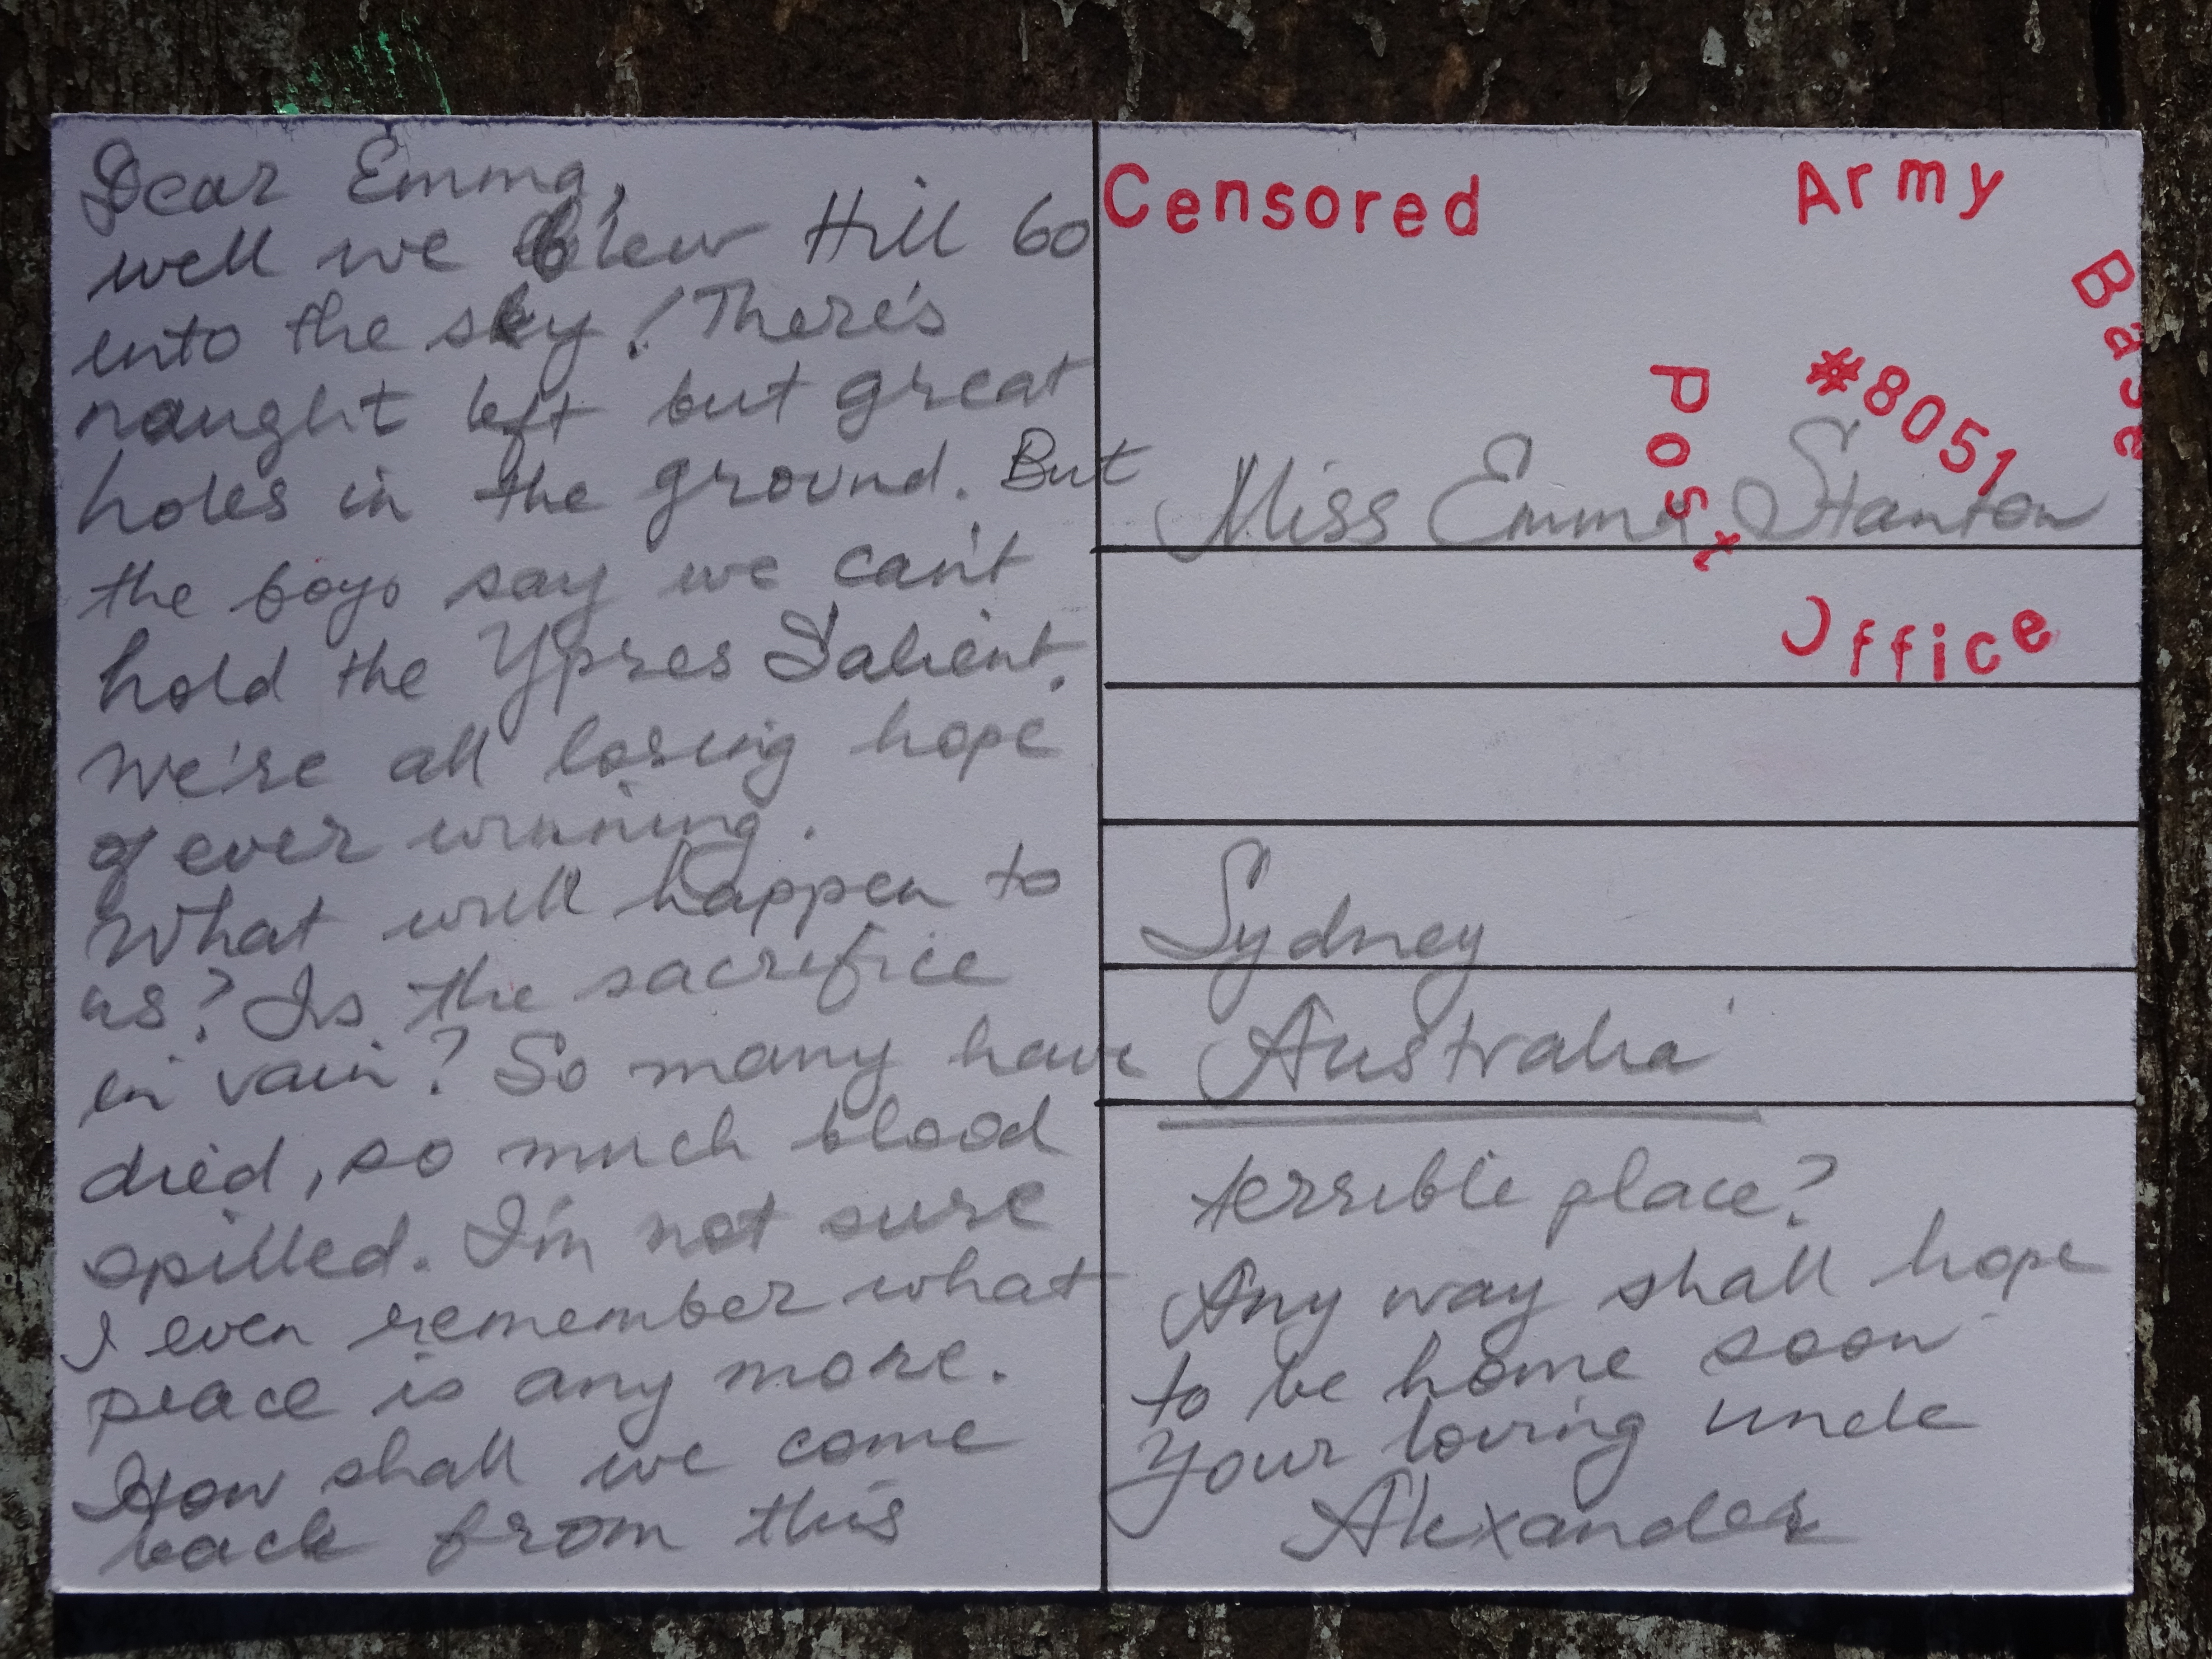 Dear Emma,
well we blew Hill 60
into the sky! There's
naught left but great
holes in the ground. But
the boys say we can't
hold the Ypres Salient.
We're all losing hope
of ever winning.
What will happen to
us? Is the sacrifice
in vain? So many have
died, so much blood
spilled. I'm not sure
I even remember what
peace is any more.
How shall we come
back from this
Censored
Army
Base
Post
Office
#8051
Miss Emma Stanton
Sydney
Australia
terrible place?
Any way shall hope
to be home soon
Your loving uncle
Alexander